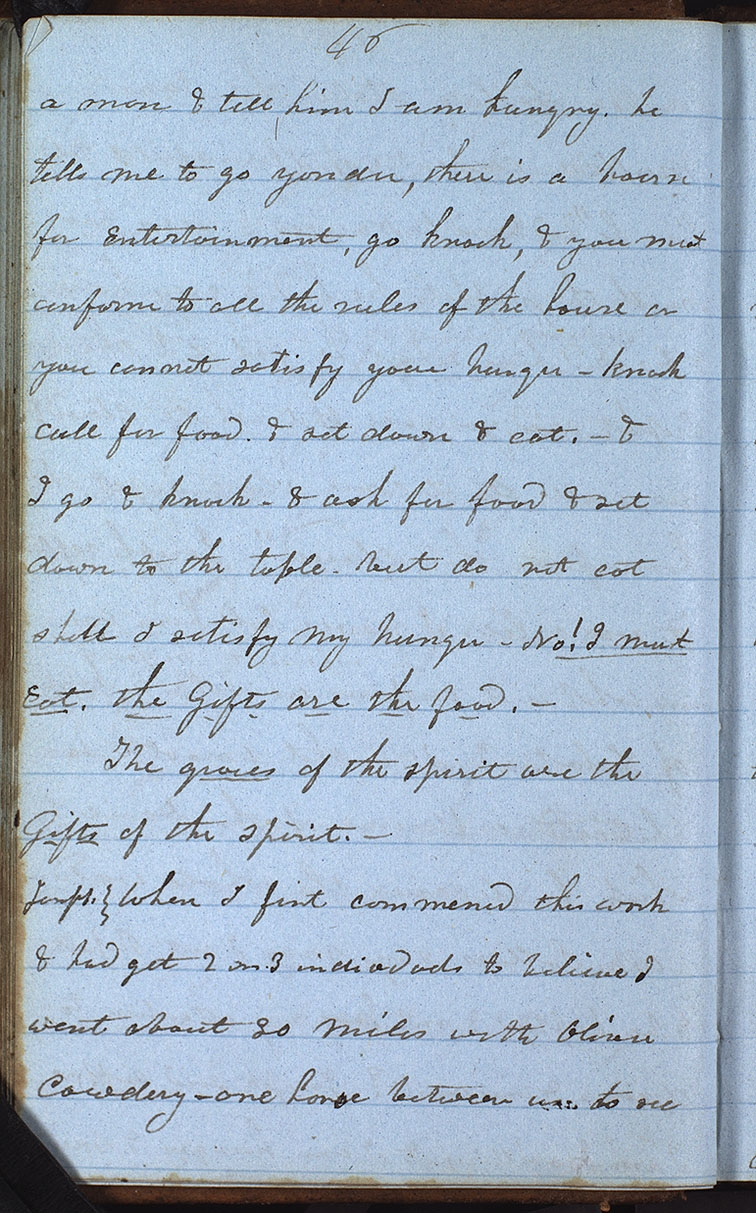 46
a man & tell him I am hungry. he
tells me to go yonder, there is a house
for Entertainment, go knock, & you must
conform to all the rules of the house or
you cannot satisfy your hunger - knock
call for food. & set down & eat. - &
I go & knock - & ask for food & set
down to the table - but do not eat
shall I satisfy my hunger - No! I must
Eat. the Gifts are the food. -
The graces of the spirit are the
Gifts of the spirit. -
Joseph. } When I first commenced this work
& had get 2 or 3 individuals to believe I
went about 30 miles with Oliver
Cowdery - one horse between us to see